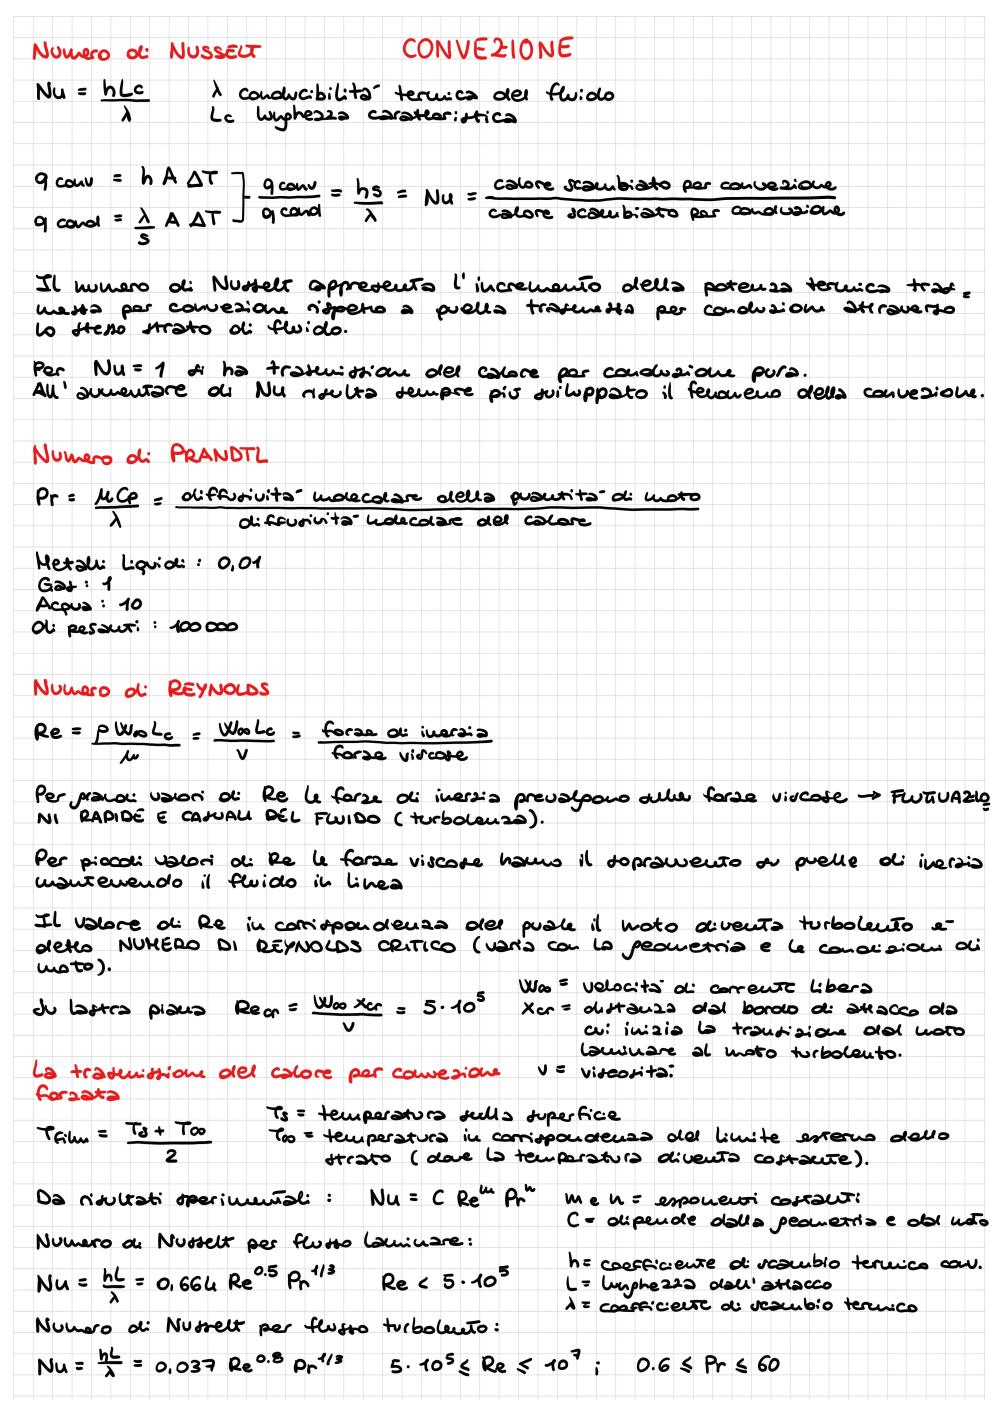 Numero di NUSSELT
CONVEZIONE
Nu = hLc / λ
λ conducibilità termica del fluido
Lc lunghezza caratteristica
q conv = h A ΔT
q cond = λ/s A ΔT
q conv / q cond = hs / λ = Nu = calore scambiato per convezione / calore scambiato per conduzione
Il numero di Nusselt rappresenta l'incremento della potenza termica tras=
messa per convezione rispetto a quella trasmessa per conduzione attraverso
lo stesso strato di fluido.
Per Nu = 1 si ha trasmissione del calore per conduzione pura.
All'aumentare di Nu risulta sempre più sviluppato il fenomeno della convezione.
Numero di PRANDTL
Pr = μCp / λ = diffusività molecolare della quantità di moto / diffusività molecolare del calore
Metalli liquidi : 0,01
Gas : 1
Acqua : 10
Oli pesanti : 100 000
Numero di REYNOLDS
Re = ρ W∞ Lc / μ = W∞ Lc / ν = forze di inerzia / forze viscose
Per grandi valori di Re le forze di inerzia prevalgono sulle forze viscose → FLUTTUAZIO
NI RAPIDE E CASUALI DEL FLUIDO (turbolenza).
Per piccoli valori di Re le forze viscose hanno il sopravvento su quelle di inerzia
mantenendo il fluido in linea
Il valore di Re in corrispondenza del quale il moto diventa turbolento è
detto NUMERO DI REYNOLDS CRITICO (varia con la geometria e le condizioni di
moto).
Su lastra piana Re cr = W∞ xcr / ν = 5·10⁵
W∞ = velocità di corrente libera
Xcr = distanza dal bordo di attacco da
cui inizia la transizione dal moto
laminare al moto turbolento.
ν = viscosità.
La trasmissione del calore per convezione
forzata
Tfilm = Ts + T∞ / 2
Ts = temperatura sulla superficie
T∞ = temperatura in corrispondenza del limite esterno dello
strato (dove la temperatura diventa costante).
Da risultati sperimentali : Nu = C Reᵐ Prⁿ
m e n = esponenti costanti
C = dipende dalla geometria e dal moto
Numero di Nusselt per flusso laminare:
Nu = hL/λ = 0,664 Re^0.5 Pr^1/3 Re < 5·10⁵
h = coefficiente di scambio termico conv.
L = lunghezza dall'attacco
λ = coefficiente di scambio termico
Numero di Nusselt per flusso turbolento:
Nu = hL/λ = 0,037 Re^0.8 Pr^1/3 5·10⁵ ≤ Re ≤ 10⁷ ; 0.6 ≤ Pr ≤ 60